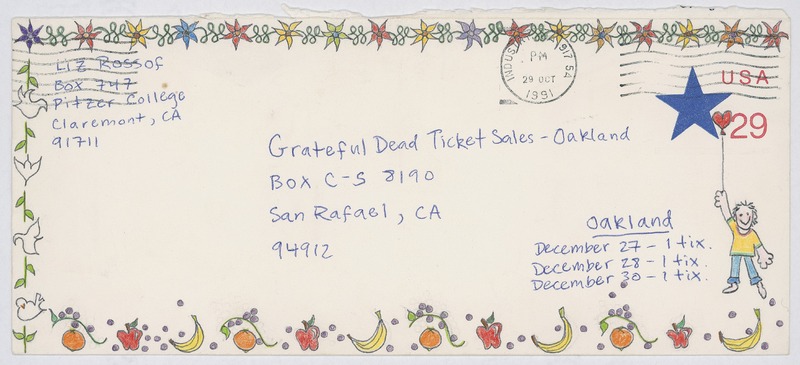 Liz Rossof
Box 747
Pitzer College
Claremont, CA
91711
INDUS
917 5A
PM
29 OCT
1991
USA
29
Grateful Dead Ticket Sales - Oakland
Box C-S 8190
San Rafael, CA
94912
Oakland
December 27 - 1 tix.
December 28 - 1 tix.
December 30 - 1 tix.